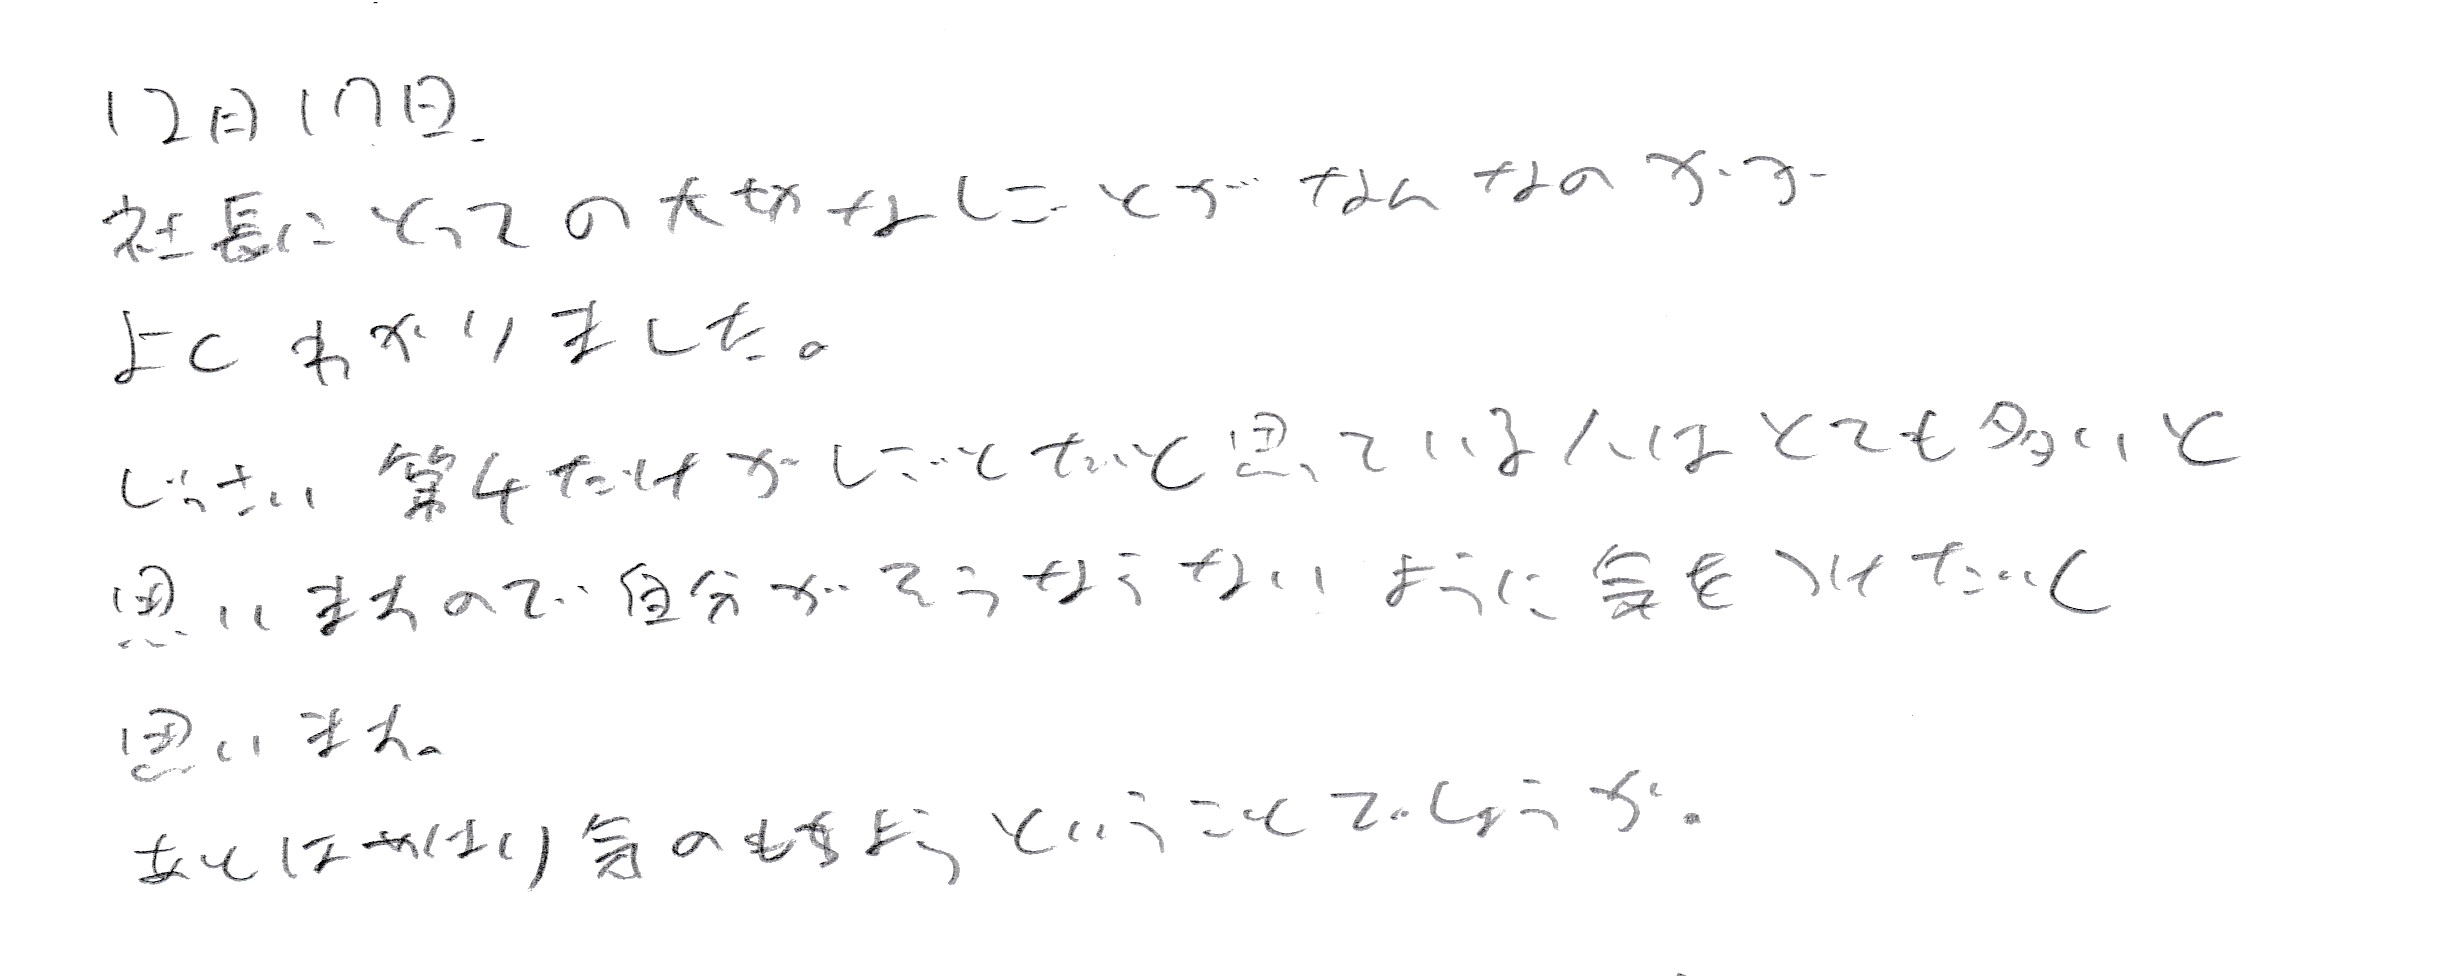 12月17日
社長にとっての大切なしごとがなんなのかが
よくわかりました。
じっさい第4だけがしごとだと思っている人はとても多いと
思いますので自分がそうならないように気をつけたいと
思います。
あとはやはり気のもちようということでしょうか。